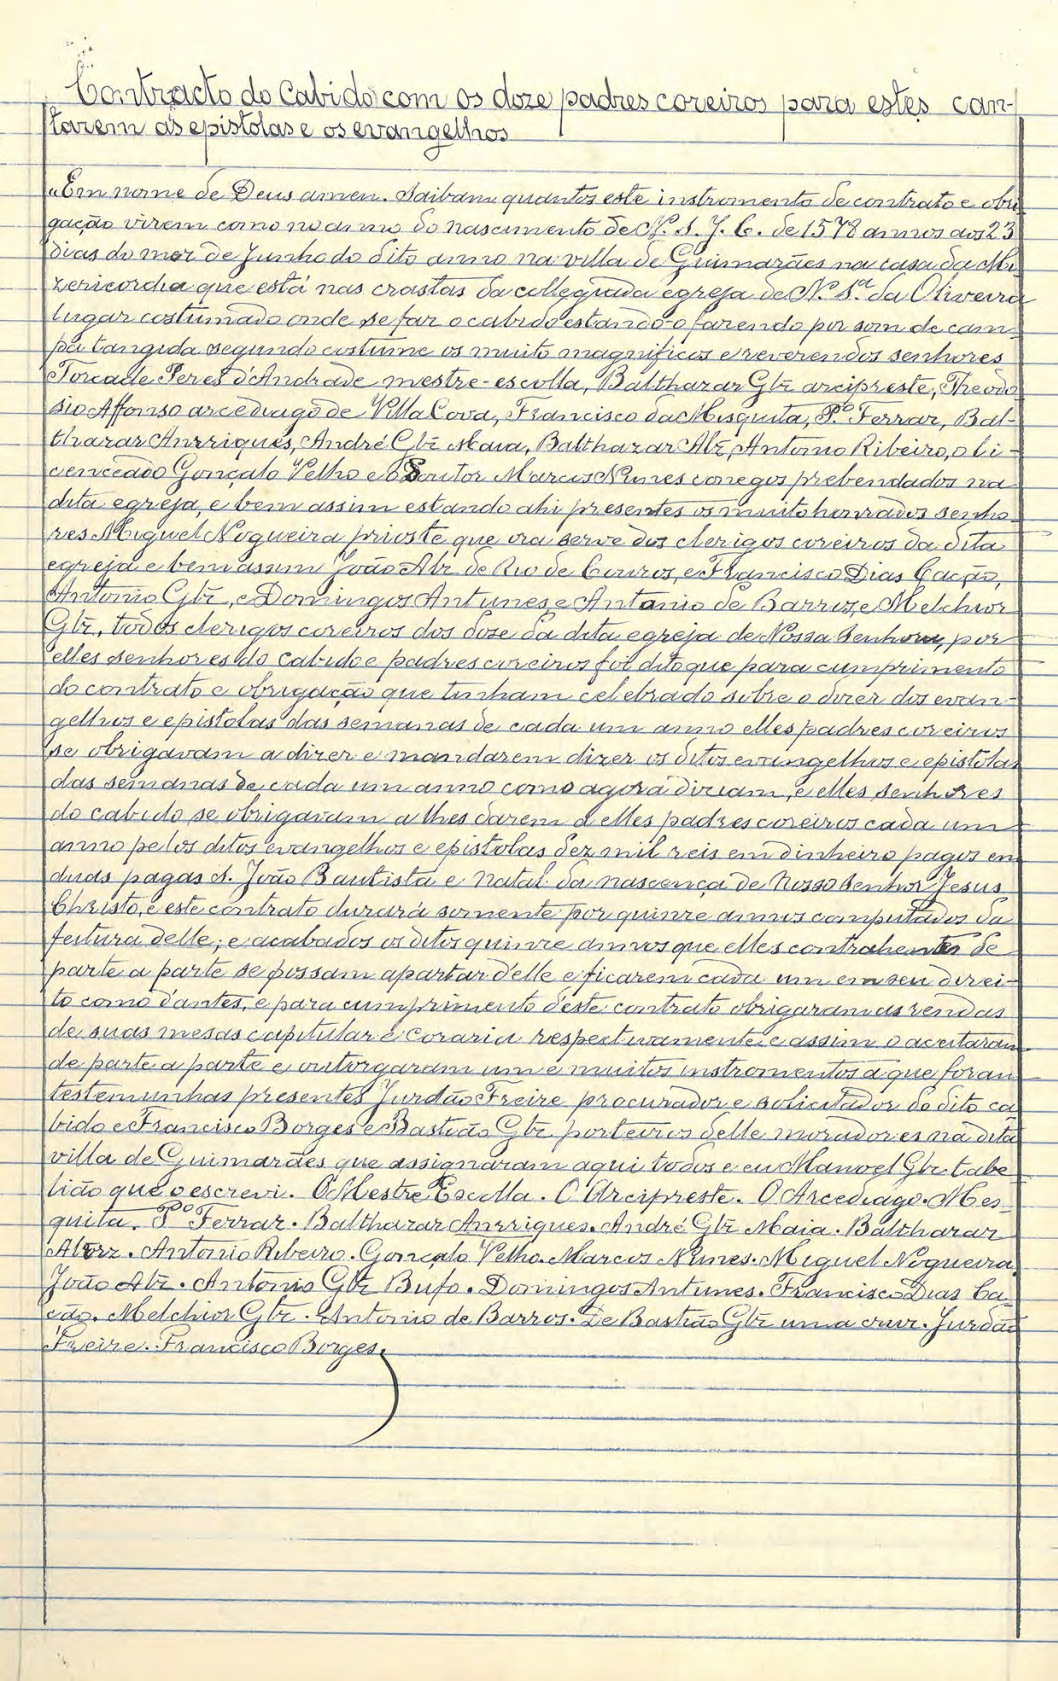 Contracto do Cabido com os doze padres coreiros para estes can-
tarem as epistolas e os evangelhos
"Em nome de Deus amen. Saibam quantos este instromento de contrato e obri
gação virem como no anno do nascimento de N. S. J. C. de 1578 annos aos 23
dias do mez de Junho do dito anno na villa de Guimarães na casa da Mi
zericordia que está nas crastas da collegiada egreja de N. Sª da Oliveira
lugar costumado onde se faz o cabido estando-o fazendo por som de cam-
pa tangida segundo costume os muito magnificos e reverendos senhores
Torcade Peres d'Andrade mestre-escolla, Balthazar Glz arcipreste, Theodo
sio Affonso arcediago de Villa Cova, Francisco da Misquita, Pº Ferraz, Bal-
thazar Anrriques, André Glz Maia, Balthazar Alz, Antonio Ribeiro, o li-
cenceado Gonçalo Velho e o Doutor Marcos Nunes conegos prebendados na
dita egreja, e bem assim estando ahi presentes os muito honrados senho
res Miguel Nogueira prioste que ora serve dos clerigos coreiros da dita
egreja e bem assim João Alz de Rio de Couros, e Francisco Dias Cação,
Antonio Glz, e Domingos Antunes, e Antonio de Barros, e Melchior
Glz, todos clerigos coreiros dos doze da dita egreja de Nossa Senhora, por
elles senhores do cabido e padres coreiros foi dito que para cumprimento
do contrato e obrigação que tinham celebrado sobre o dizer dos evan-
gelhos e epistolas das semanas de cada um anno elles padres coreiros
se obrigavam a dizer e mandarem dizer os ditos evangelhos e epistolas
das semanas de cada um anno como agora diziam, e elles senhores
do cabido se obrigavam a lhes darem a elles padres coreiros cada um
anno pelos ditos evangelhos e epistolas dez mil reis em dinheiro pagos em
duas pagas S. João Bautista e Natal da nascença de Nosso Senhor Jesus
Christo, e este contrato durará somente por quinze annos computados da
feitura delle; e acabados os ditos quinze annos que elles contrahentes de
parte a parte se possam apartar d'elle e ficarem cada um em seu direi-
to como d'antes, e para cumprimento d'este contrato obrigaram as rendas
de suas mesas capitular e coraria respectivamente e assim o aceitaram
de parte a parte e outorgaram um e muitos instromentos a que foram
testemunhas presentes Jurdão Freire procurador e solicitador do dito ca
bido e Francisco Borges e Bastião Glz porteiros delle moradores na dita
villa de Guimarães que assignaram aqui todos e eu Manoel Glz tabe
lião que o escrevi. O Mestre Escolla. O Arcipreste. O Arcediago. Mes-
quita. Pº Ferraz. Balthazar Anrriques. André Glz Maia. Balthazar
Alvrz. Antonio Ribeiro. Gonçalo Velho. Marcos Nunes. Miguel Nogueira.
João Alz. Antonio Glz Bufo. Domingos Antunes. Francisco Dias Ca-
ção. Melchior Glz. Antonio de Barros. De Bastião Glz uma cruz. Jurdão
Freire. Francisco Borges.